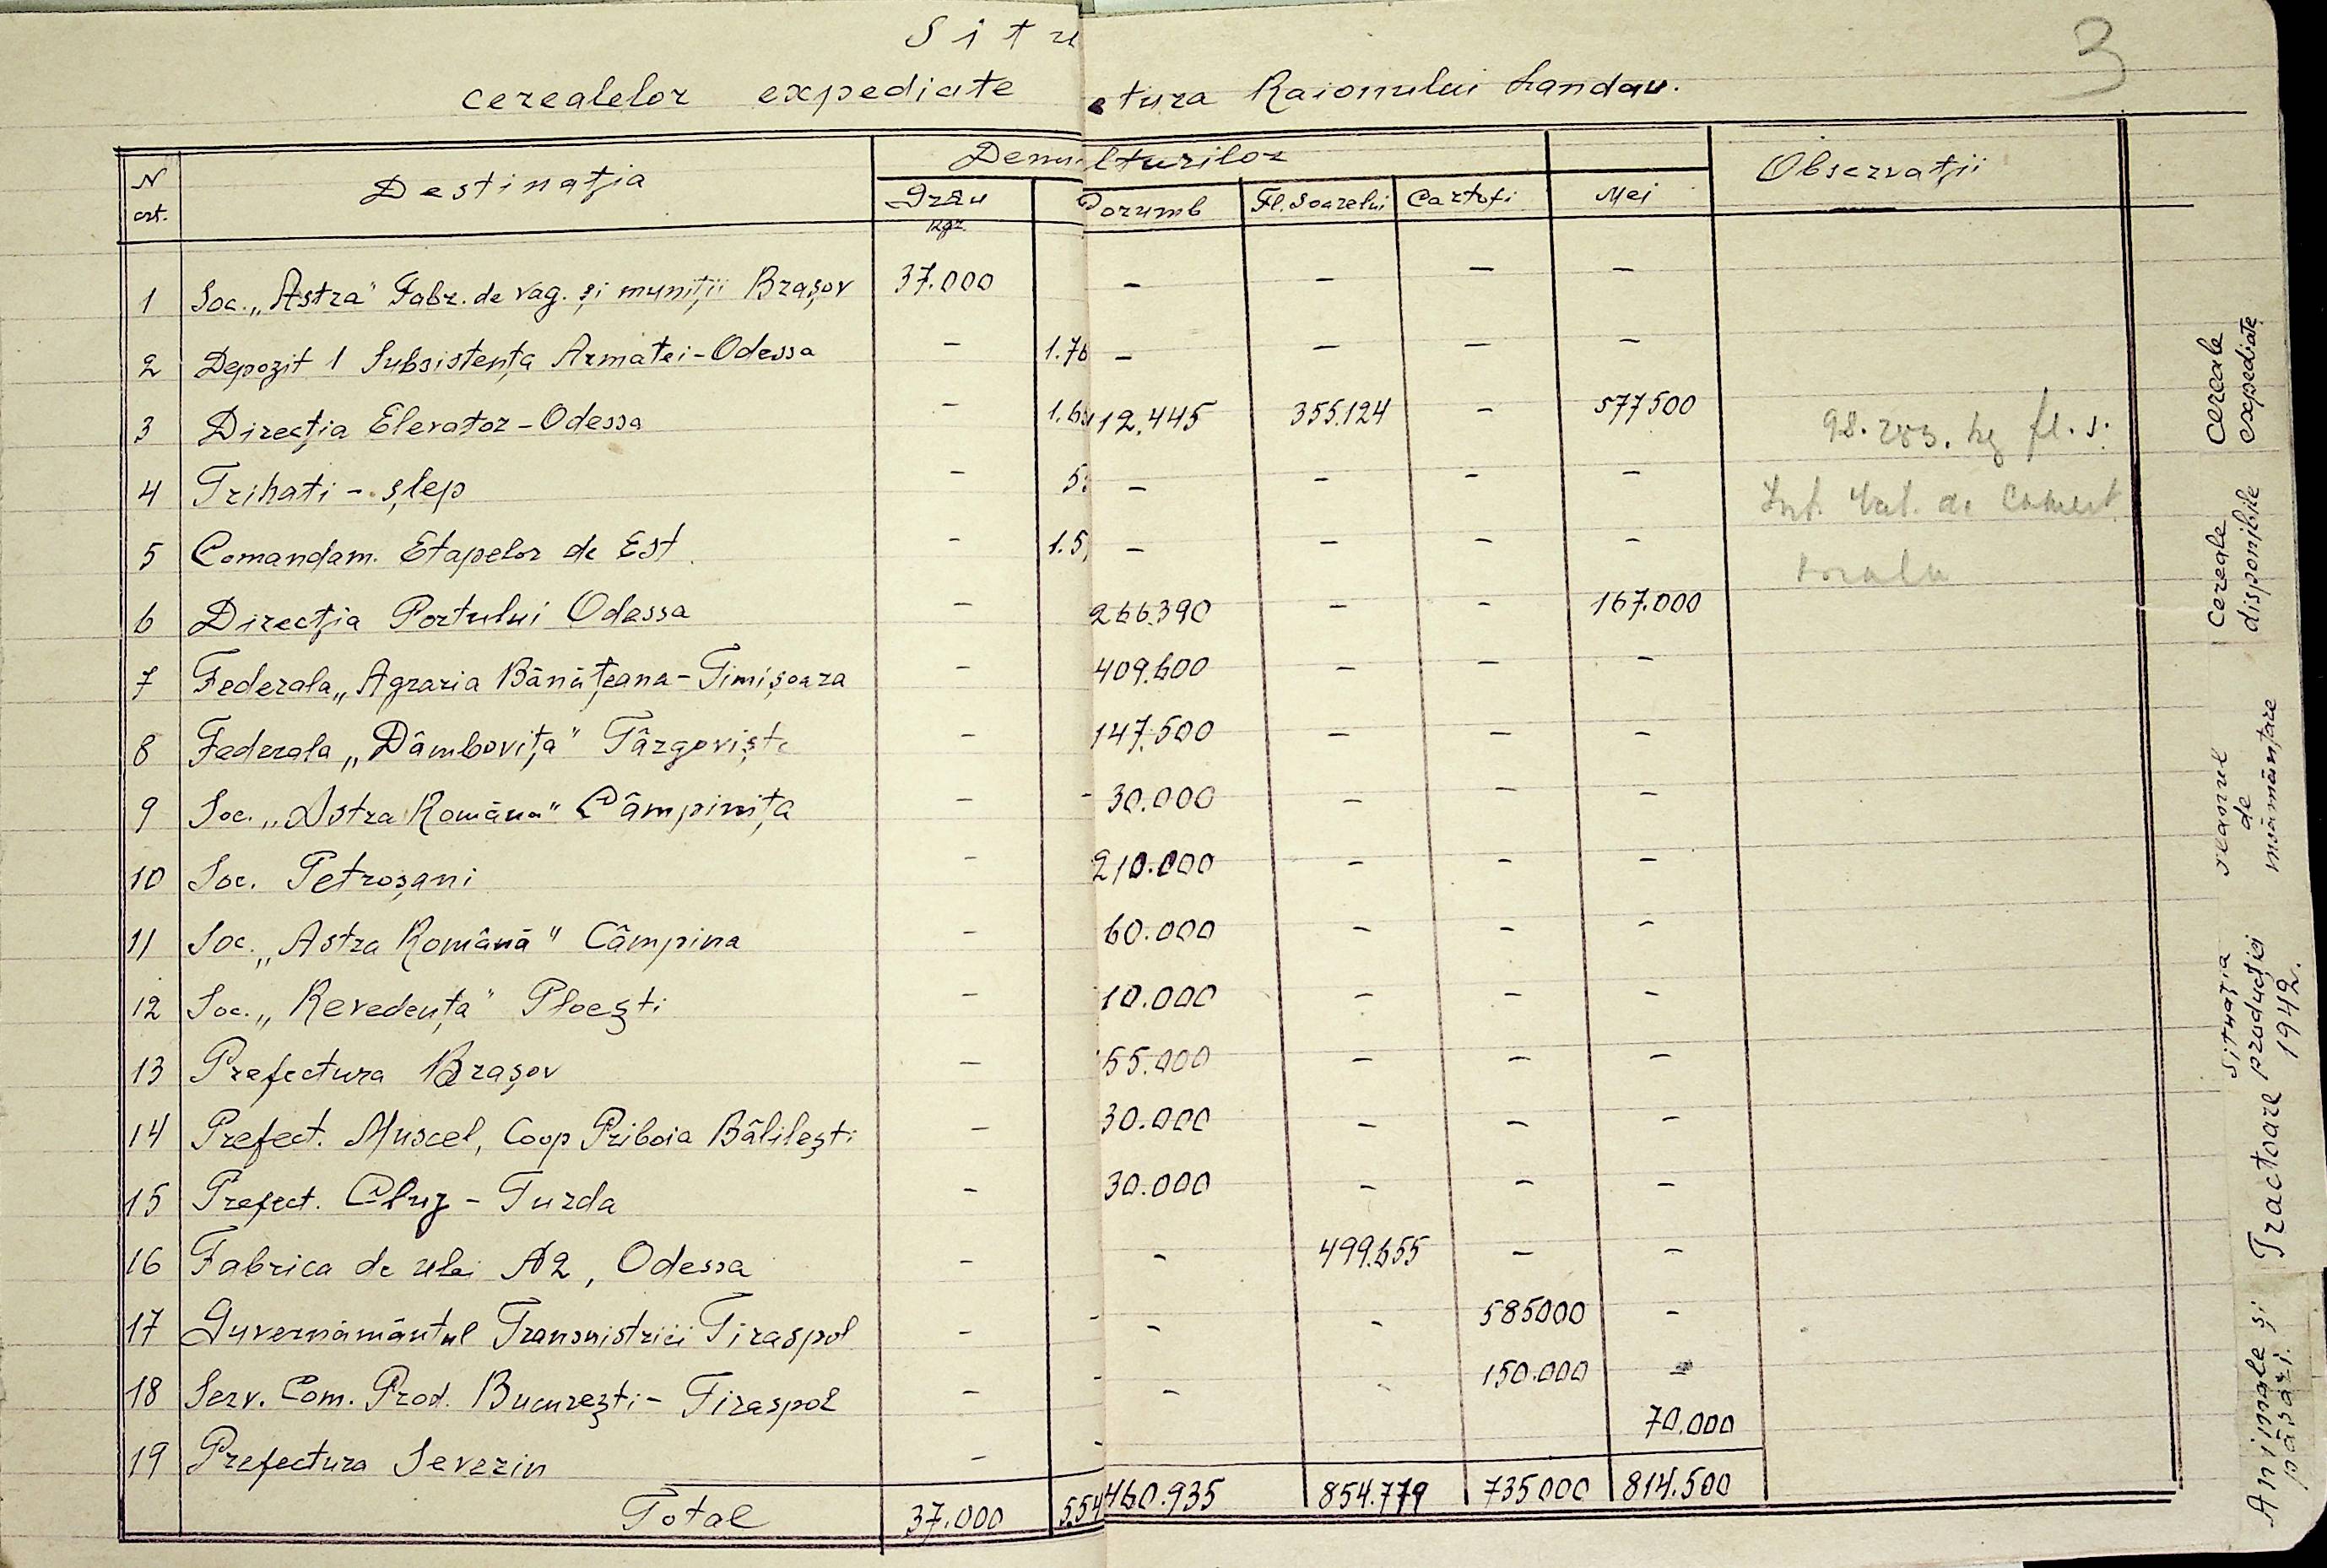 3
Situ
cerealelor expediate etura Raionului Landau.
N crt. Destinaţia Denu lturilor Observaţii
Grâu Porumb Fl. Soarelui Cartofi Mei
kgr.
1 Soc. „Astra" Fabr. de vag. şi muniţii Braşov 37.000 - - - -
2 Depozit 1 Subsistenţa Armatei - Odessa - 1.76 - - - -
3 Direcţia Elevator - Odessa - 1.6 12.445 355.124 - 577500
4 Trihati - şlep - 5 - - - -
5 Comandam. Etapelor de Est. - 1.5 - - - -
6 Direcţia Portului Odessa - 266.390 - - 167.000
7 Federala „Agraria Bănăţeana - Timişoara - 409.600 - - -
8 Federala „Dâmboviţa" Târgovişte - 147.500 - - -
9 Soc. „Astra Română" Câmpiniţa - - 30.000 - - -
10 Soc. Petroşani - 210.000 - - -
11 Soc. „Astra Română" Câmpina - 60.000 - - -
12 Soc. „Revedenţa" Ploeşti - 10.000 - - -
13 Prefectura Braşov - 55.000 - - -
14 Prefect. Muscel, Coop Priboia Bălileşti - 30.000 - - -
15 Prefect. Cluj - Turda - 30.000 - - -
16 Fabrica de ulei A2, Odessa - - 499.655 - -
17 Guvernământul Transnistriei Tiraspol - - - - 585000 -
18 Serv. Com. Prod. Bucureşti - Tiraspol - - - - 150.000 -
19 Prefectura Severin - - 70.000
Total 37.000 5.54 460.935 854.779 735000 814.500
kg fl. s.
de
cereale
expediate
cereale
disponibile
de
însămânţare
situaţia
producţiei
1942.
Tractoare
Animale şi
păsări.